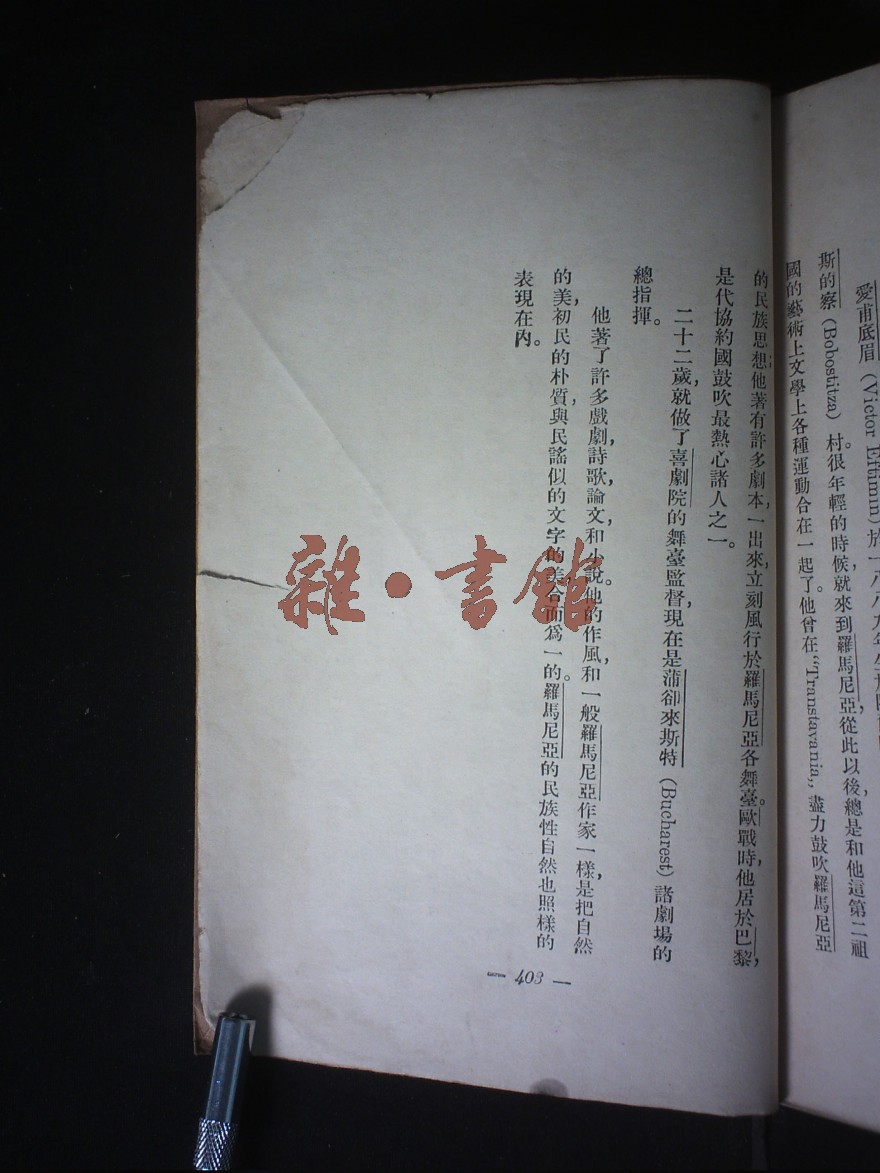 愛甫底眉 (Victor Eftimin) 於一八八九年生於
斯的察 (Bobostitza) 村。很年輕的時候,就來到羅馬尼亞,從此以後,總是和他這第二祖
國的藝術上文學上各種運動合在一起了。他曾在“Transtavania,, 盡力鼓吹羅馬尼亞
的民族思想;他著有許多劇本,一出來,立刻風行於羅馬尼亞各舞臺。歐戰時,他居於巴黎,
是代協約國鼓吹最熱心諸人之一。
二十二歲,就做了喜劇院的舞臺監督,現在是蒲卻來斯特 (Bucharest) 諸劇場的
總指揮。
他著了許多戲劇,詩歌,論文,和小說。他的作風,和一般羅馬尼亞作家一樣,是把自然
的美,初民的朴質,與民謠似的文字的美,合而爲一的。羅馬尼亞的民族性自然也照樣的
表現在內。
— 403 —
雜·書館